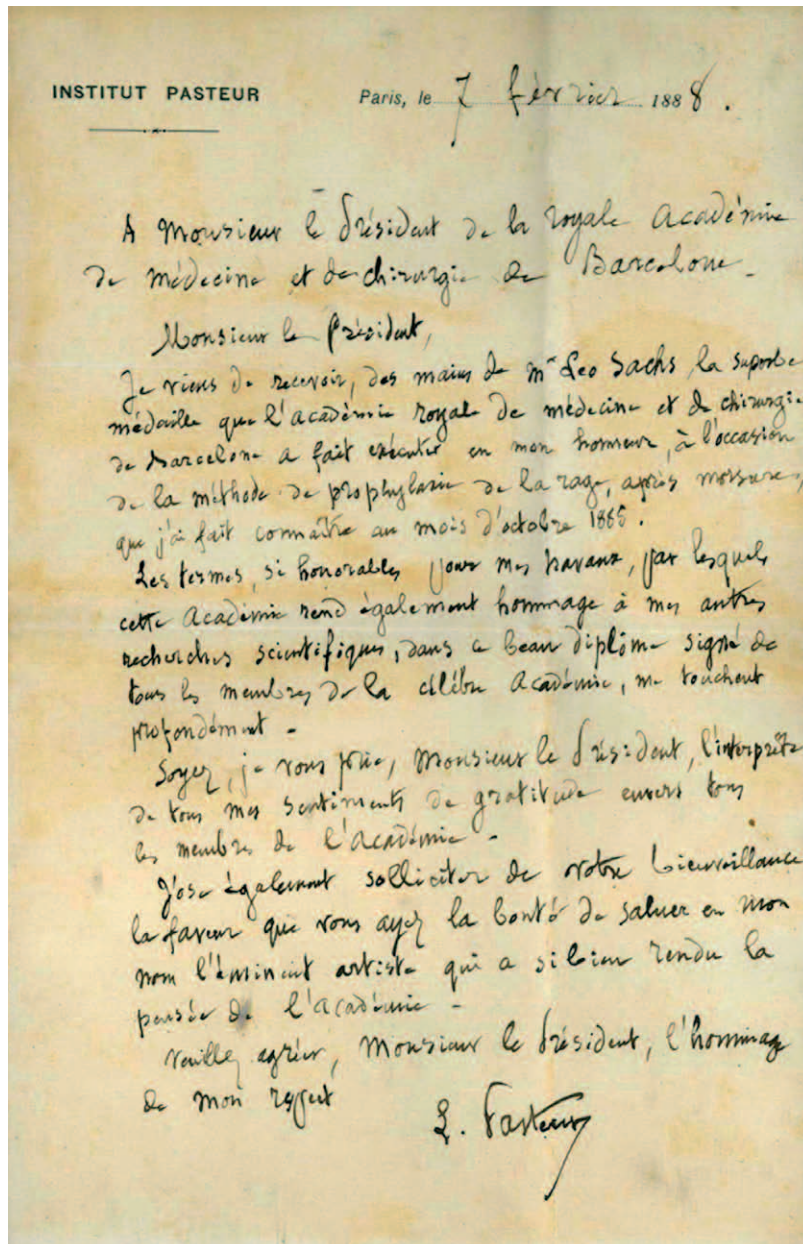 INSTITUT PASTEUR
Paris, le 7 février 1888.
A Monsieur le Président de la royale Académie
de médecine et de chirurgie de Barcelone -
Monsieur le Président,
Je viens de recevoir, des mains de Mr Leo Sachs, la superbe
médaille que l'académie royale de médecine et de chirurgie
de Barcelone a fait exécuter en mon honneur, à l'occasion
de la méthode de prophylaxie de la rage, après morsure,
que j'ai fait connaître au mois d'octobre 1885.
Les termes, si honorables pour mes travaux, par lesquels
cette Académie rend également hommage à mes autres
recherches scientifiques, dans ce beau diplôme signé de
tous les membres de la célèbre Académie, me touchent
profondément -
Soyez, je vous prie, Monsieur le Président, l'interprète
de tous mes sentiments de gratitude envers tous
les membres de l'Académie -
J'ose également solliciter de votre bienveillance
la faveur que vous ayez la bonté de saluer en mon
nom l'éminent artiste qui a si bien rendu la
pensée de l'Académie -
Veuillez agréer, Monsieur le Président, l'hommage
de mon respect
L. Pasteur